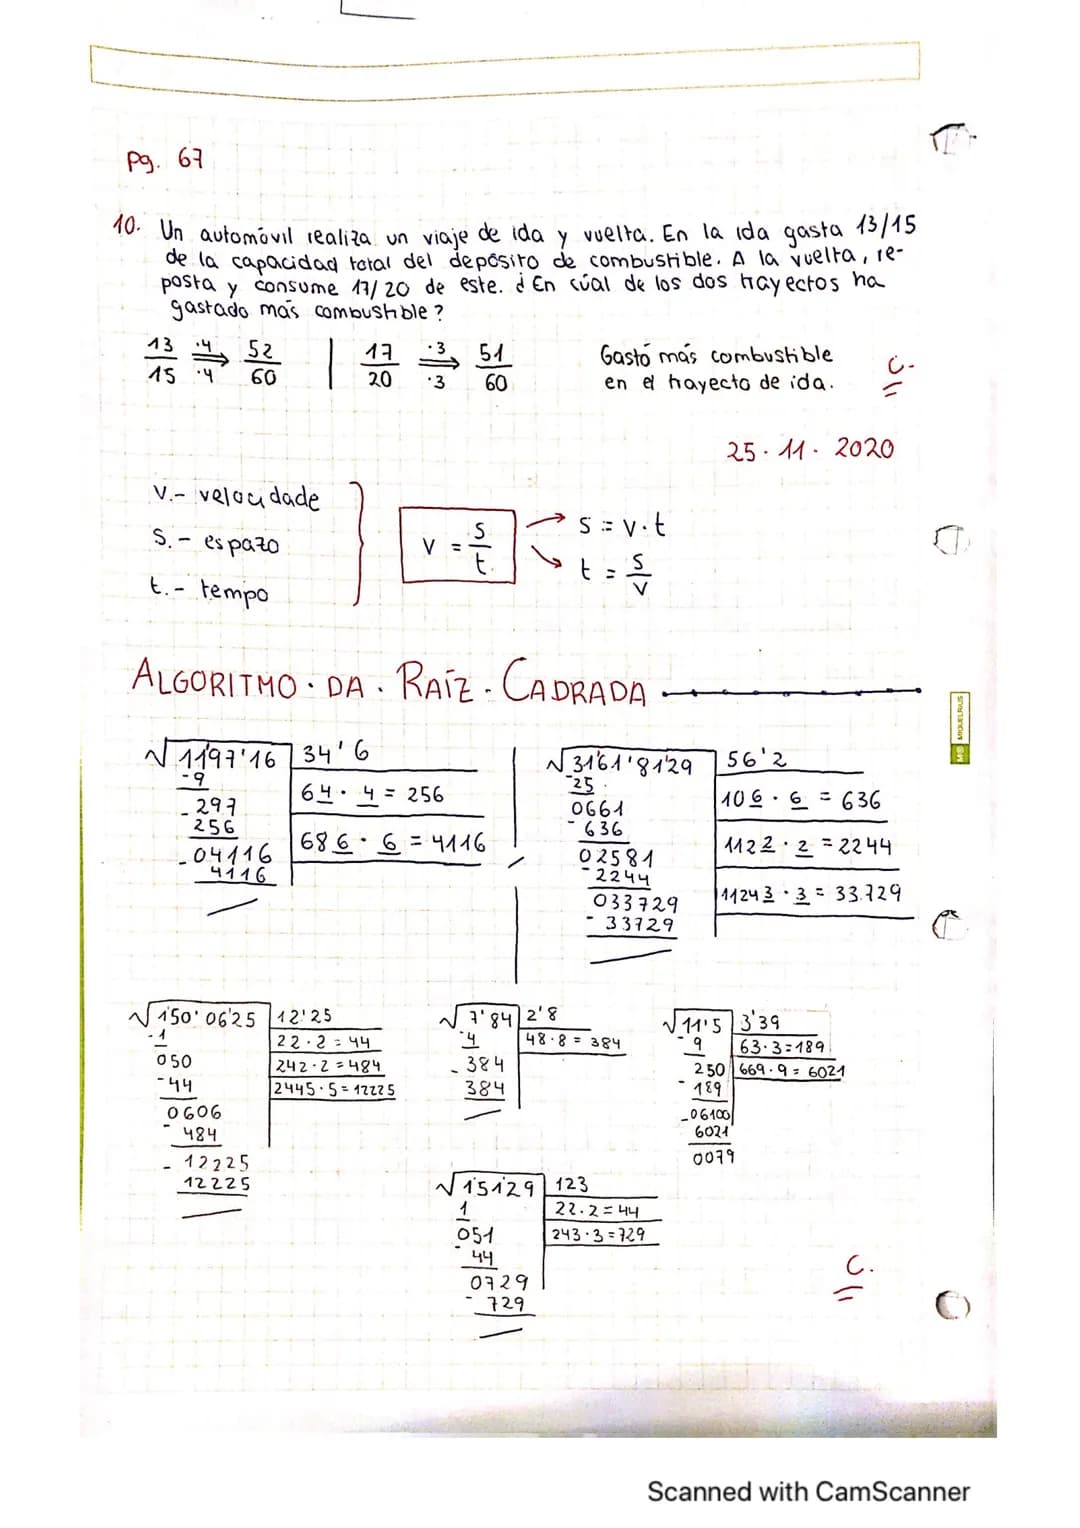 pg. 67
10. Un automóvil realiza un viaje de ida y vuelta. En la ida gasta 13/15
de la capacidad total del depósito de combustible. A la vuelta, re-
posta y consume 17/20 de este. ¿En cúal de los dos trayectos ha
gastado más combustible?
13/15 ·4/·4 ⇒ 52/60 | 17/20 ·3/·3 ⇒ 51/60
Gastó más combustible
en el trayecto de ida.
C.
25. 11. 2020
v.- velocidade
s.- espazo
t.- tempo
v = s/t
→ s = v·t
↘ t = s/v
ALGORITMO · DA · RAÍZ · CADRADA
√1197'16 34'6
-9 64 · 4 = 256
-297
256 686 · 6 = 4116
-04116
4116
√3161'8129 56'2
-25 106 · 6 = 636
0661
-636 1122 · 2 = 2244
02581
-2244 11243 · 3 = 33.729
033729
-33729
√150'0625 12'25
-1 22·2=44
050 242·2=484
-44 2445·5=12225
0606
-484
-12225
12225
√7'84 2'8
-4 48·8=384
-384
384
√11'5 3'39
-9 63·3=189
250 669·9=6021
-189
-06100
6021
0079
√15129 123
1 22·2=44
051 243·3=729
-44
0729
-729
C.
MIQUELRIUS
Scanned with CamScanner